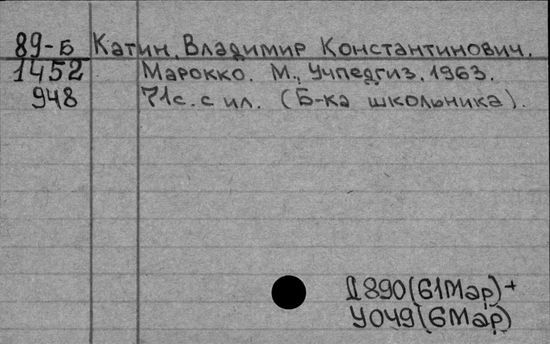 89-Б Катин, Владимир Константинович.
1452 Марокко. М., Учпедгиз, 1963.
948 71с. с ил. (Б-ка школьника).
Д890(61Мар)+
У049(6Мар)